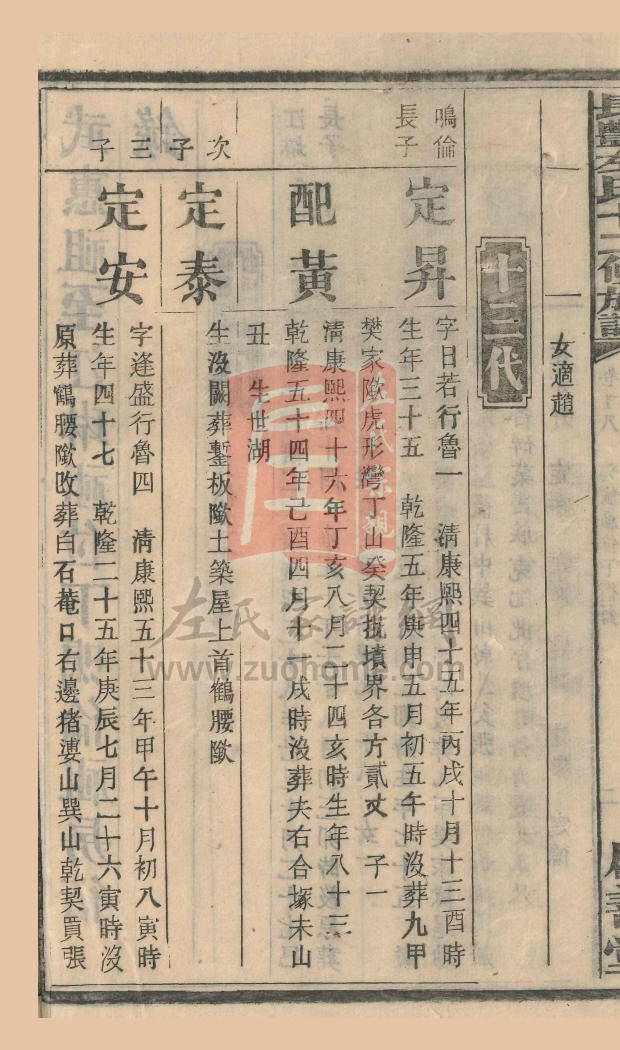 女適趙
十三代
鳴倫長子
定昇
字日若行魯一 清康熙四十五年丙戌十月十三酉時
生年三十五 乾隆五年庚申五月初五午時沒葬九甲
樊家歘虎形灣丁山癸契抵墳界各方貳丈 子一
配黃
清康熙四十六年丁亥八月二十四亥時生年八十三
乾隆五十四年己酉四月十一戌時沒葬夫右合塚未山
丑 生世湖
次子
定泰
生沒闕葬鏨板歘土築屋上首鶴腰歘
三子
定安
字逢盛行魯四 清康熙五十三年甲午十月初八寅時
生年四十七 乾隆二十五年庚辰七月二十六寅時沒
原葬鶴腰歘改葬白石菴口右邊猪婆山巽山乾契買張
左氏家譜網
www.zuohome.com